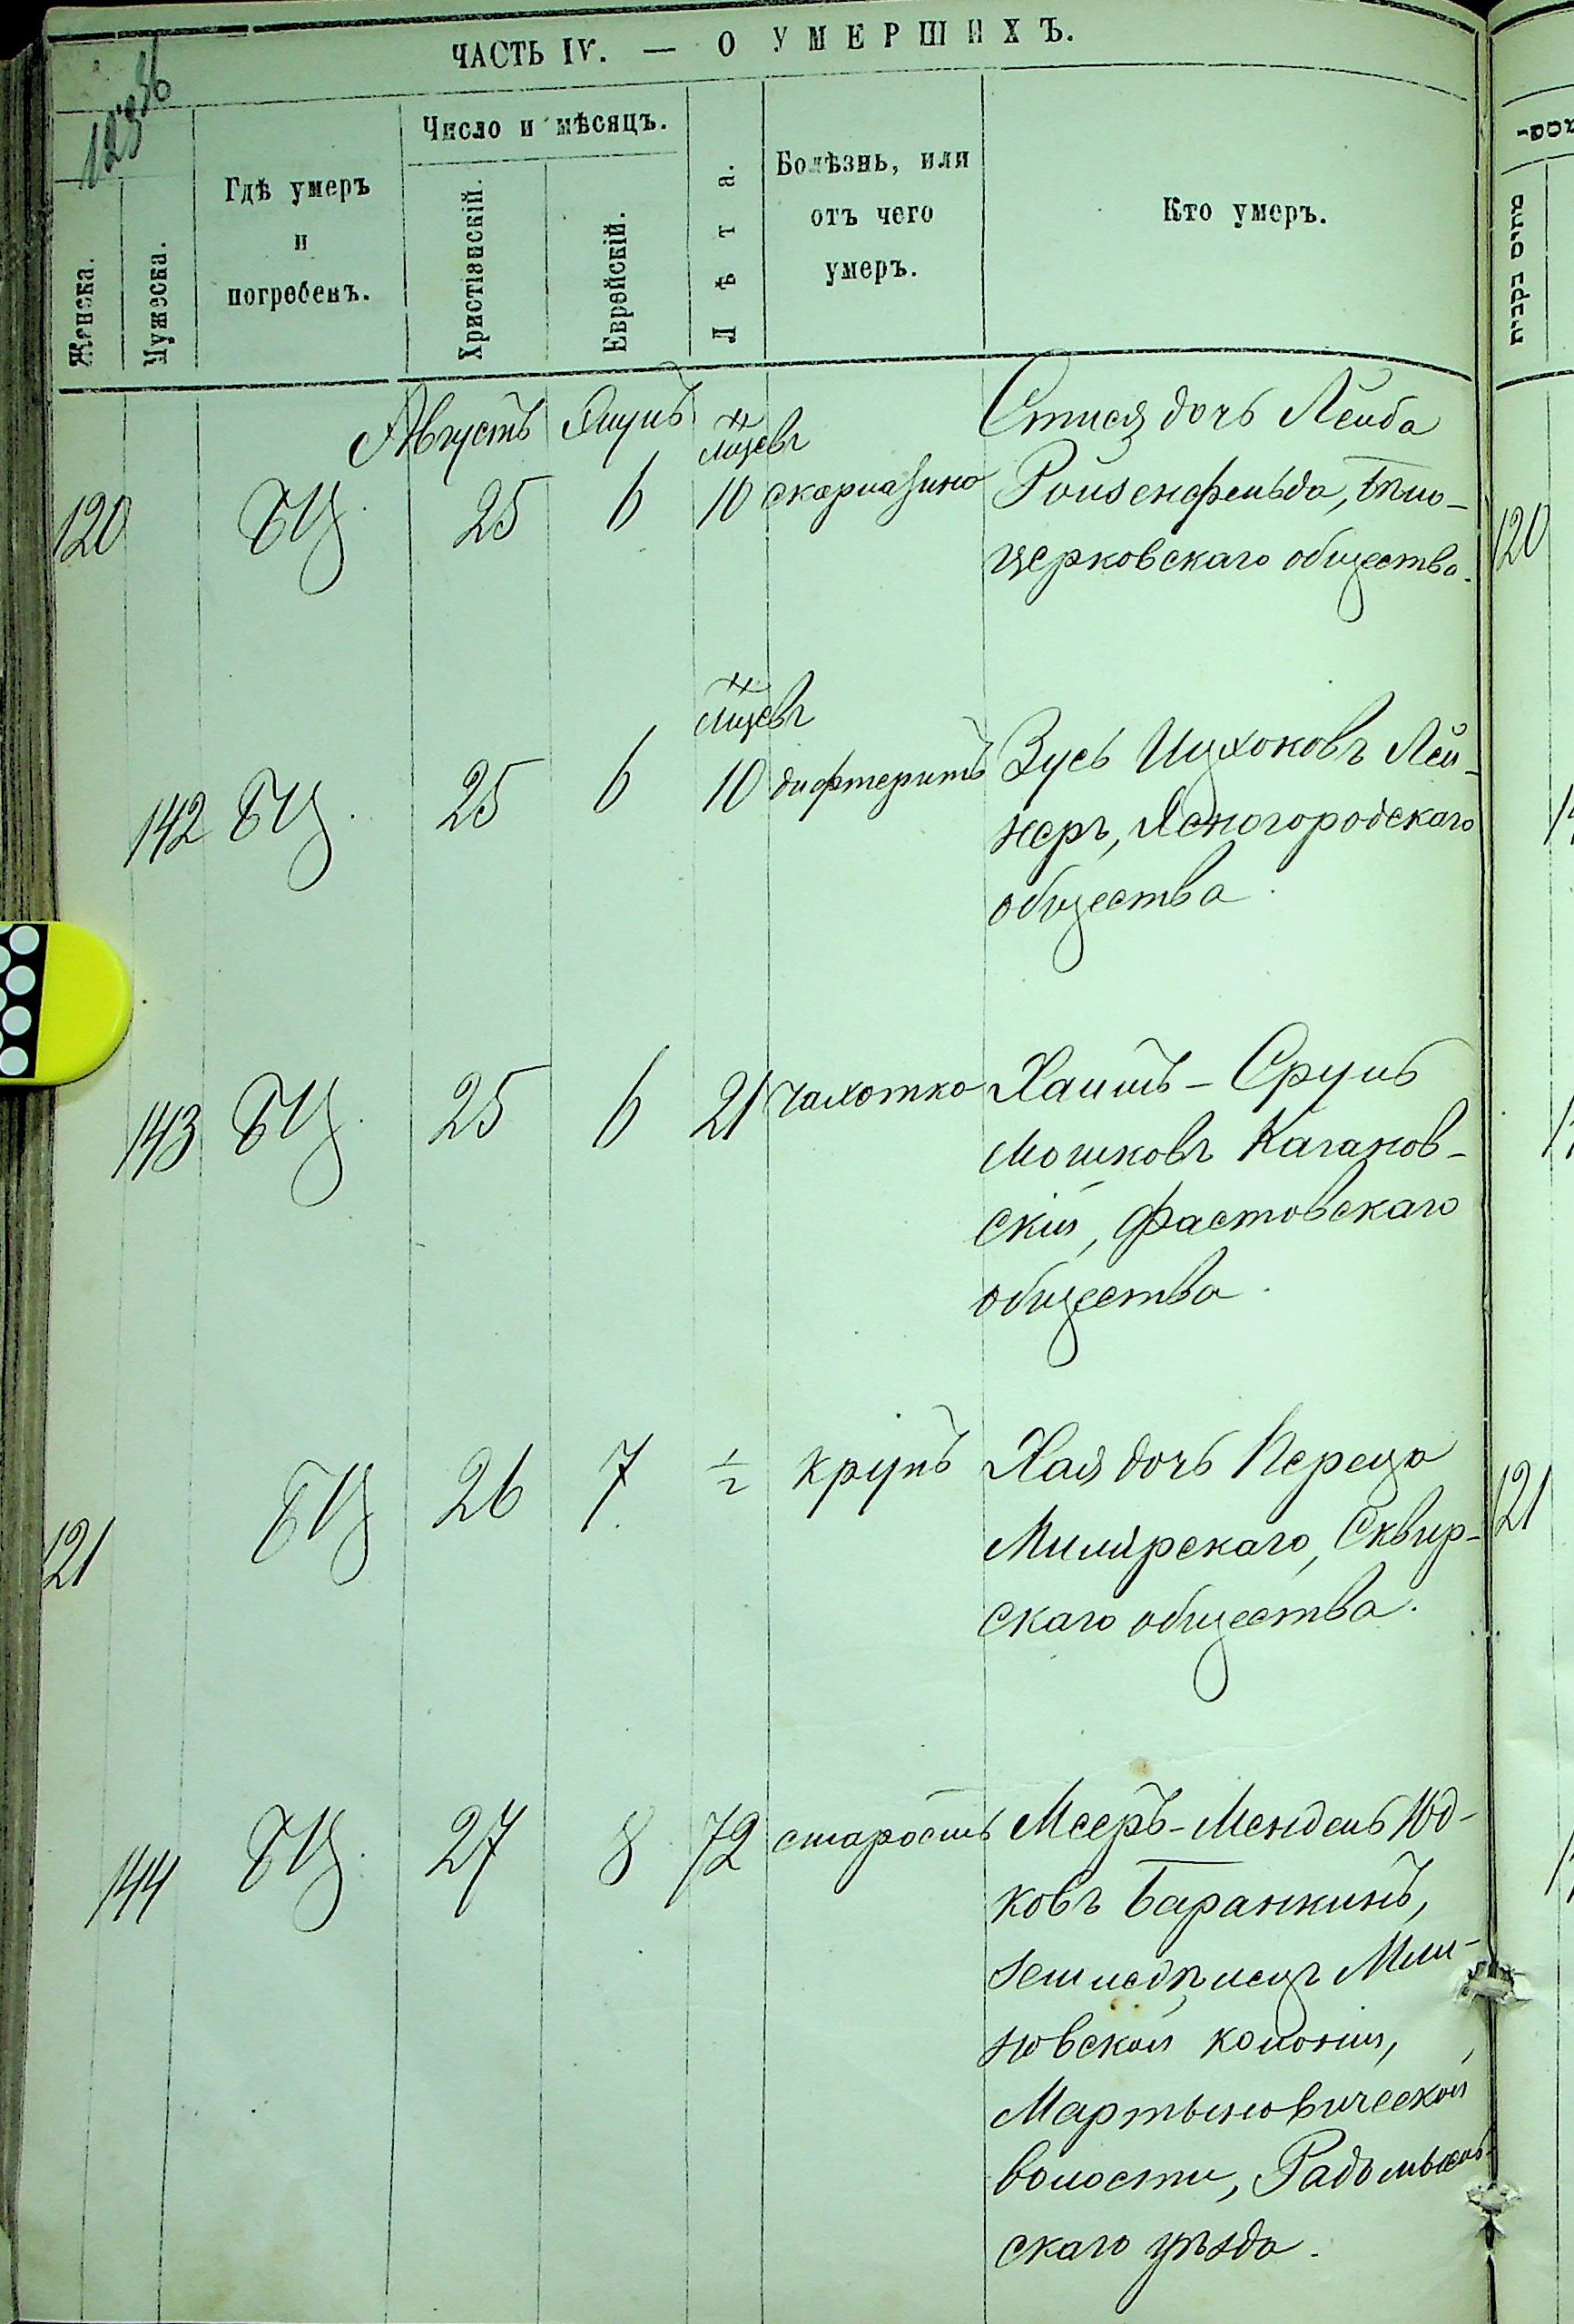 ЧАСТЬ IV. — О УМЕРШИХЪ.
123 об
Женска.
Мужеска.
Гдѣ умеръ
и
погребенъ.
Число и мѣсяцъ.
Христіанскій.
Еврейскій.
Лѣта.
Болѣзнь, или
отъ чего
умеръ.
Кто умеръ.
Августъ
мцевъ
дочь Лейба
120 БЦ. 25 6 10 Ройзенфельда, Бѣло-
церковскаго общества.
120
мцевъ
142 БЦ. 25 6 10 дифтеритъ Зусь Ицхоковъ Лей-
неръ, Ясногородскаго
общества.
143 БЦ. 25 6 21 чахотка Хаимъ-Сруль
Мошковъ Каганов-
скій, Фастовскаго
общества.
121 БЦ 26 7 1/2 крупъ Хая дочь Переца
Сквир-
скаго общества.
121
144 БЦ. 27 8 72 старость Мееръ-Мендель Юд-
ковъ Баранкинъ,
земледѣлецъ Мли-
новской колоніи,
Мартыновической
волости, Радомысль-
скаго уѣзда.